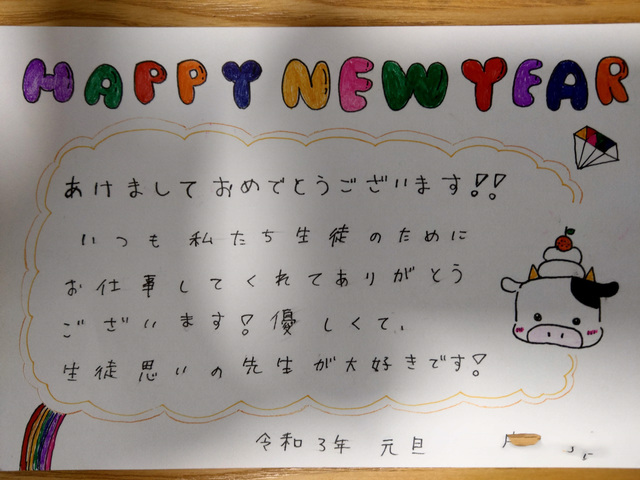 HAPPY NEW YEAR
あけましておめでとうございます!!
いつも私たち生徒のために
お仕事してくれてありがとう
ございます!優しくて、
生徒思いの先生が大好きです!
令和3年 元旦